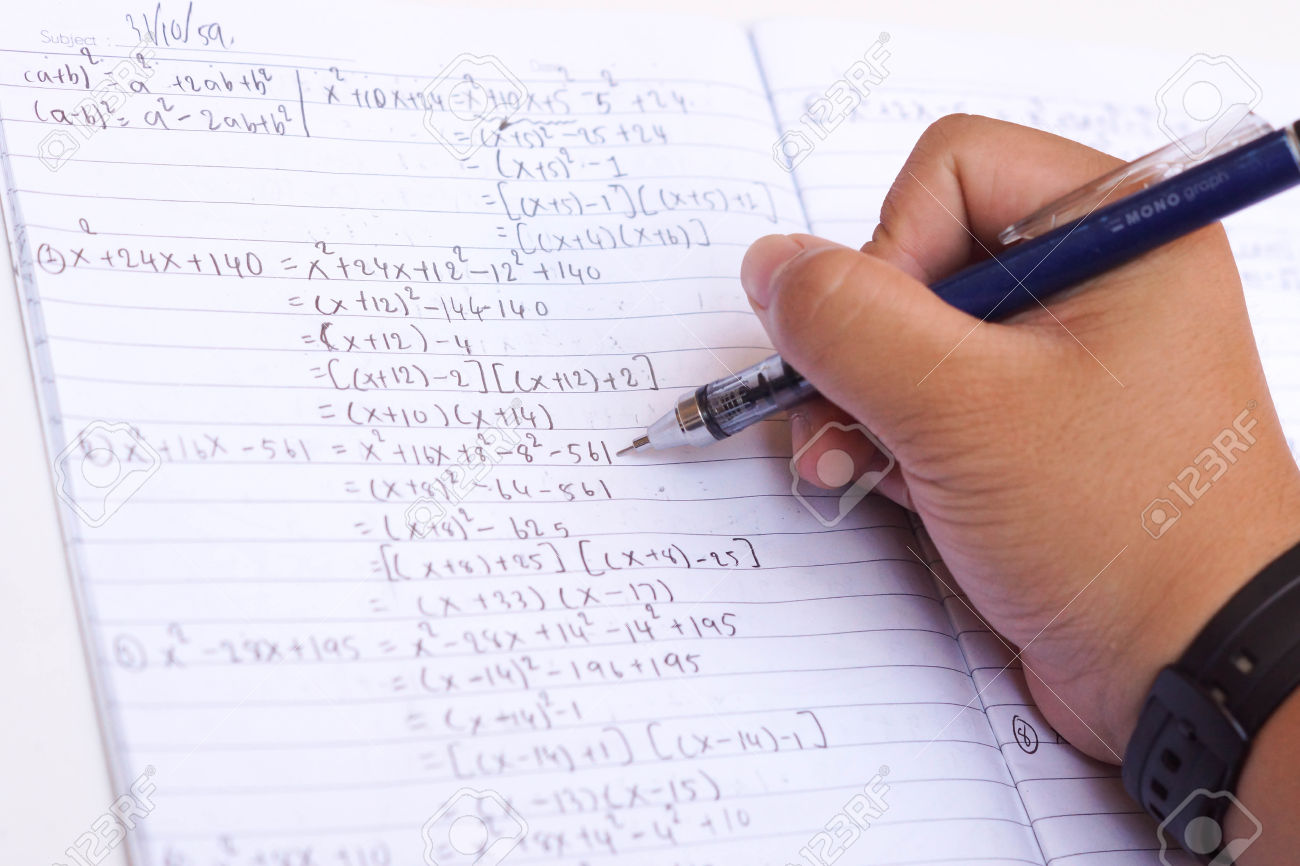 Subject : 31/10/59.
(a+b)² = a² +2ab+b² | x² +10x+24 = x²+10x+5² -5² +24
(a-b)² = a² - 2ab+b² | = (x+5)² -25+24
= (x+5)² - 1
= [(x+5)-1] [(x+5)+1]
= [(x+4)(x+6)]
① x²+24x+140 = x²+24x+12²-12²+140
= (x+12)²-144-140
= (x+12)-4
=[(x+12)-2][(x+12)+2]
= (x+10)(x+14)
x²+16x-561 = x²+16x+8²-8²-561
= (x+8)²-64-561
= (x+8)²-625
=[(x+8)+25] [(x+8)-25]
= (x+33)(x-17)
x²-28x+195 = x²-28x+14²-14²+195
= (x-14)²-196+195
= (x+14)²-1
= [(x-14)+1] [(x-14)-1]
= (x-13)(x-15)
x²+8x+10 = x²+8x+4²-4²+10
MONO graph
⑧
123RF